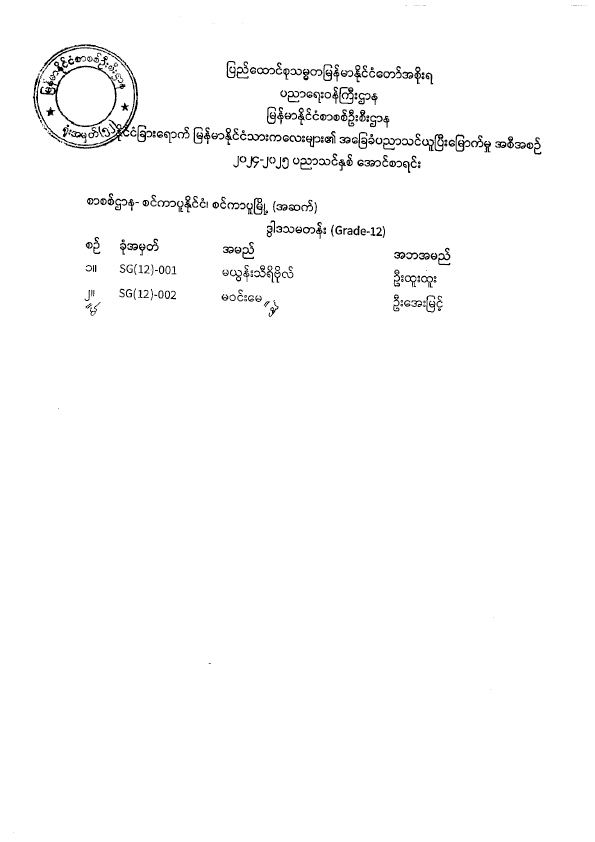 မြန်မာနိုင်ငံစာစစ်ဦးစီးဌာန
ရုံးအမှတ်(၅၂)
ပြည်ထောင်စုသမ္မတမြန်မာနိုင်ငံတော်အစိုးရ
ပညာရေးဝန်ကြီးဌာန
မြန်မာနိုင်ငံစာစစ်ဦးစီးဌာန
နိုင်ငံခြားရောက် မြန်မာနိုင်ငံသားကလေးများ၏ အခြေခံပညာသင်ယူပြီးမြောက်မှု အစီအစဉ်
၂၀၂၄-၂၀၂၅ ပညာသင်နှစ် အောင်စာရင်း
စာစစ်ဌာန- စင်ကာပူနိုင်ငံ၊ စင်ကာပူမြို့ (အဆက်)
ဒွါဒသမတန်း (Grade-12)
စဉ် ခုံအမှတ် အမည် အဘအမည်
၁။ SG(12)-001 မယွန်းသီရိဗိုလ် ဦးထူးထူး
၂။ SG(12)-002 မဝင်းမေ ဦးအေးမြင့်